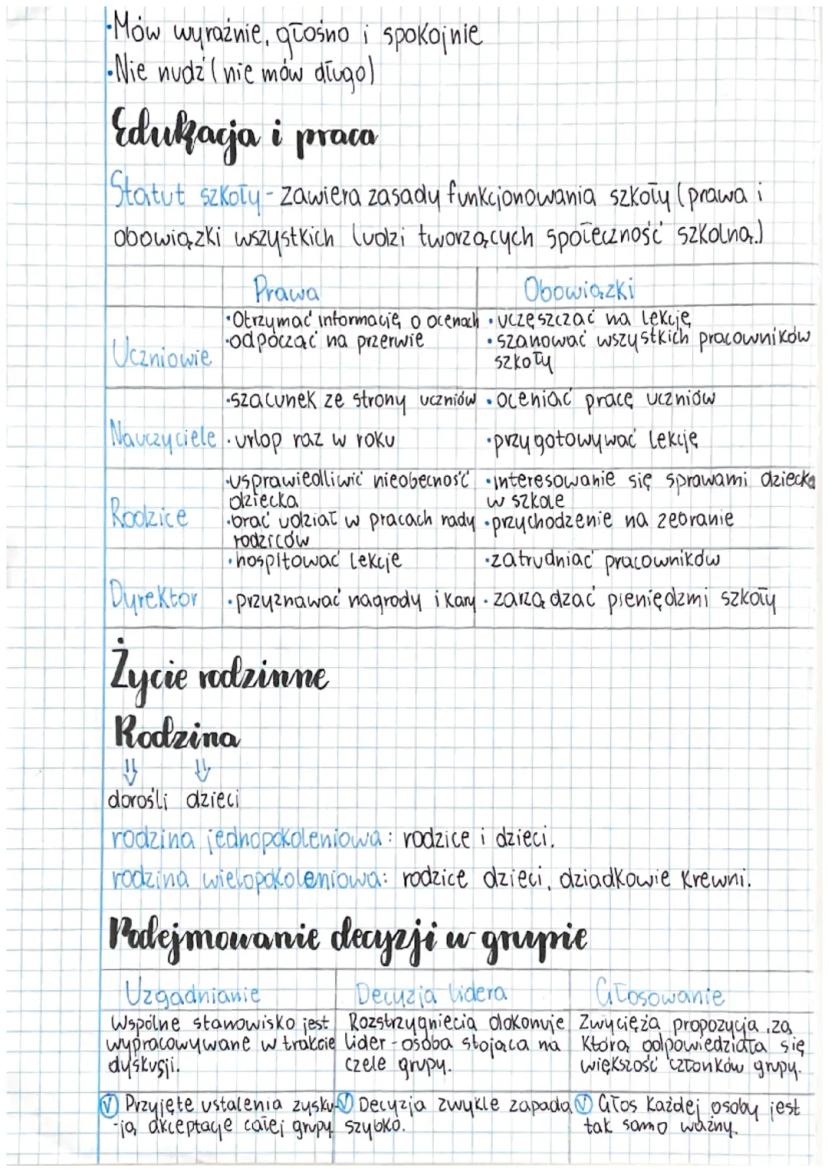 •Mów wyraźnie, głośno i spokojnie
•Nie nudź (nie mów długo)
Edukacja i praca
Statut szkoły - zawiera zasady funkcjonowania szkoły (prawa i
obowiązki wszystkich ludzi tworzących społeczność szkolną.)
Prawa
Obowiązki
Uczniowie
•Otrzymać informację o ocenach
•odpocząć na przerwie
•uczęszczać na lekcję
•szanować wszystkich pracowników
szkoły
Nauczyciele
•szacunek ze strony uczniów
•urlop raz w roku
•oceniać pracę uczniów
•przygotowywać lekcję
Rodzice
•usprawiedliwić nieobecność
dziecka
•brać udział w pracach rady
rodziców
•interesowanie się sprawami dziecka
w szkole
•przychodzenie na zebranie
Dyrektor
•hospitować lekcje
•przyznawać nagrody i kary
•zatrudniać pracowników
•zarządzać pieniędzmi szkoły
Życie rodzinne
Rodzina
⇓ ⇓
dorośli dzieci
rodzina jednopokoleniowa: rodzice i dzieci.
rodzina wielopokoleniowa: rodzice dzieci, dziadkowie krewni.
Podejmowanie decyzji w grupie
Uzgadnianie
Wspólne stanowisko jest
wypracowywane w trakcie
dyskusji.
Decyzja lidera
Rozstrzygnięcia dokonuje
lider - osoba stojąca na
czele grupy.
Głosowanie
Zwycięża propozycja, za
którą odpowiedziała się
większość członków grupy.
Ⓥ Przyjęte ustalenia zysku-
-ją akceptację całej grupy
Ⓥ Decyzja zwykle zapada
szybko.
Ⓥ Głos każdej osoby jest
tak samo ważny.